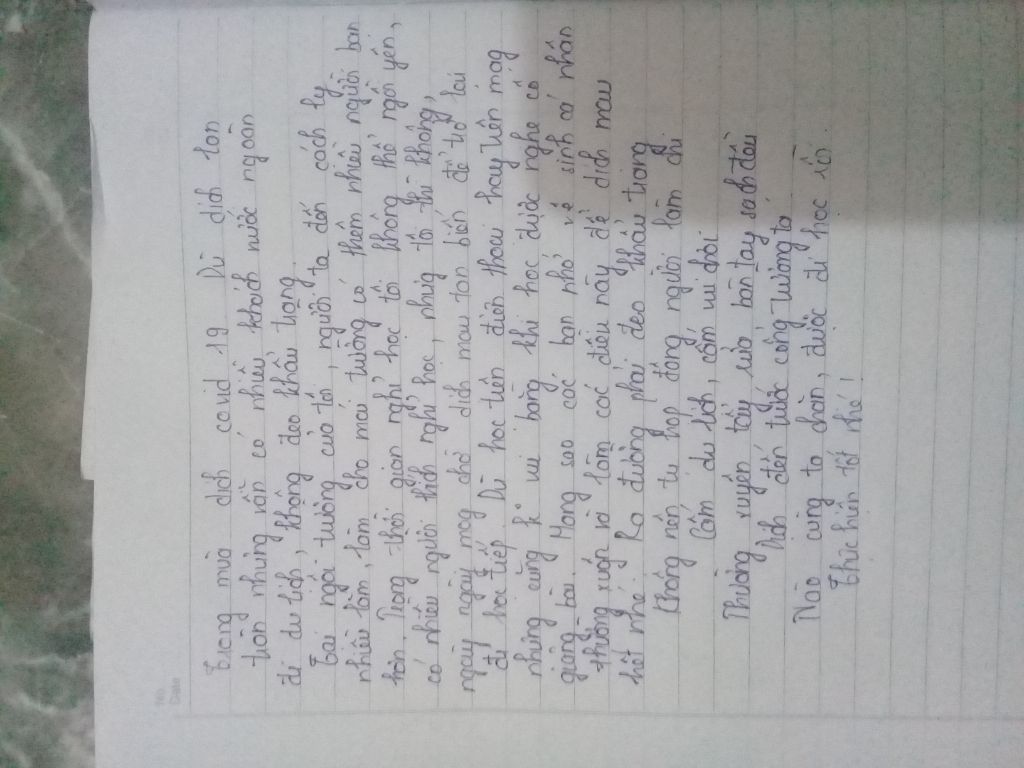 Trong mùa dịch covid 19 Dù dịch lan
tràn nhưng vẫn có nhiều khách nước ngoàn
đi du lịch, không đeo khẩu trang
Tại ngôi trường của tôi, người ta đến cách ly
nhiều lắm, làm cho mái trường có thêm nhiều người bạn
hơn. Trong thời gian nghỉ học tôi không thể ngồi yên,
có nhiều người thích nghỉ học, nhưng tôi thì không,
ngày ngày mong chờ dịch mau tan biến để trở lại
đi học tiếp. Dù học trên điện thoại hay trên mạng
nhưng cũng k vui bằng khi học được nghe cô
giảng bài. Mong sao các bạn nhớ vệ sinh cá nhân
thường xuyên và làm các điều này để dịch mau
hết nhé! Ra đường phải đeo khẩu trang
Không nên tụ họp đông người làm chi
Cấm du lịch, cấm vui chơi
Thường xuyên tẩy rửa bàn tay sạch
đến trước cổng trường ta
Nào cùng ta chần, được đi học rồi.
Thực hiện tốt nhé!
No.
Date